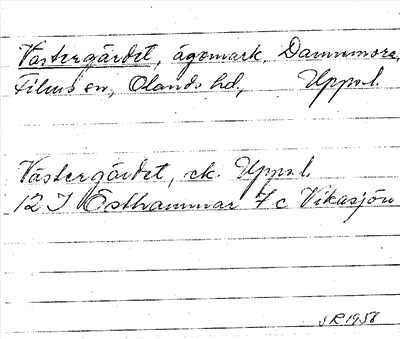 Västergärdet, ägomark, Dannemora,
Films sn, Olands hd, Uppsl.
Västergärdet, ek. Uppsl.
12 I Östhammar 7 c Vikasjön
SR 1958